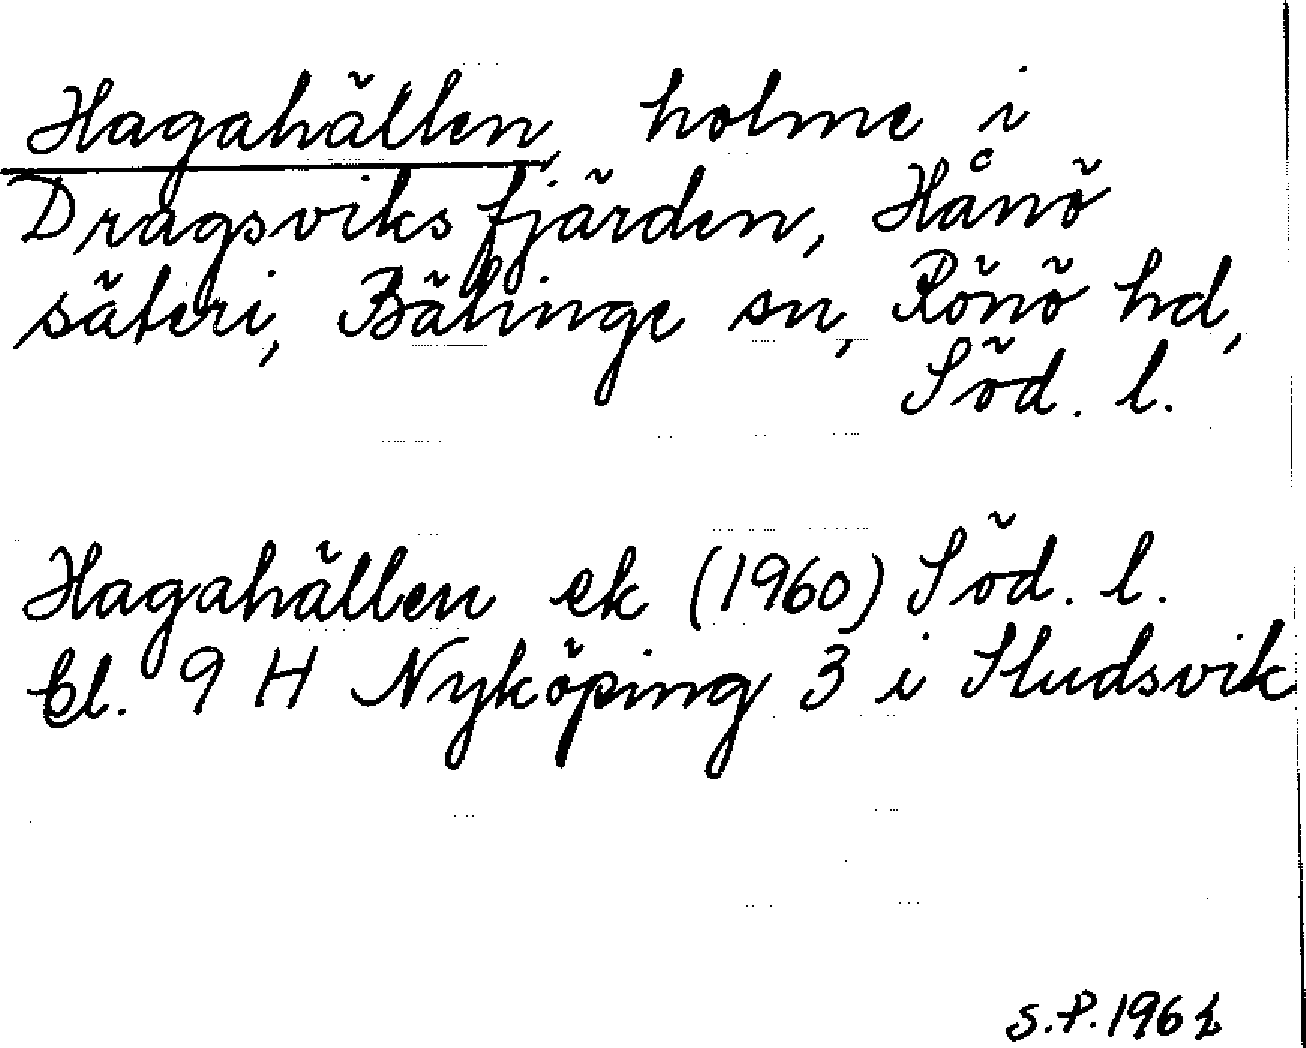 Hagahällen, holme i
Dragsviksfjärden, Hånö
säteri, Bälinge sn, Rönö hd,
Söd. l.
Hagahällen ek (1960) Söd. l.
bl. 9 H Nyköping 3 i Studsvik
S.P.